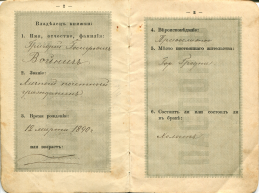 — 2 —
Владѣлецъ книжки:
1. Имя, отчество, фамилія:
Войницъ
2. Званіе:
Личный почетный
гражданинъ
3. Время рожденія:
12 марта 1890 г.
или возрастъ:
— 3 —
4. Вѣроисповѣданіе:
5. Мѣсто постояннаго жительства:
Гор. Гродно
6. Состоитъ ли или состоялъ ли
въ бракѣ:
Холостъ